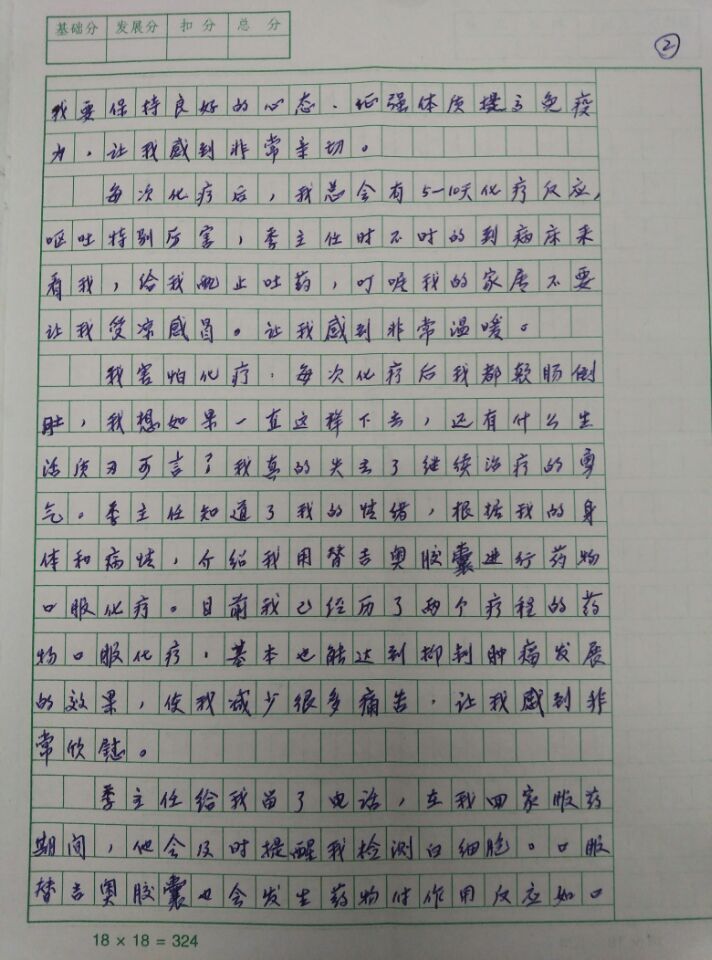 基础分 发展分 扣分 总分
②
我要保持良好的心态、征强体质提高免疫
力，让我感到非常亲切。
每次化疗后，我总会有5—10天化疗反应，
呕吐特别厉害，季主任时不时的到病床来
看我，给我配止吐药，叮咛我的家属不要
让我受凉感冒。让我感到非常温暖。
我害怕化疗，每次化疗后我都软肠倒
肚，我想如果一直这样下去，还有什么生
活质才可言？我真的失去了继续治疗的勇
气。季主任知道了我的情绪，根据我的身
体和病情，介绍我用替吉奥胶囊进行药物
口服化疗。目前我已经历了两个疗程的药
物口服化疗，基本也能达到抑制肿瘤发展
的效果，使我减少很多痛苦，让我感到非
常欣慰。
季主任给我留了电话，在我回家服药
期间，他会及时提醒我检测白细胞。口服
替吉奥胶囊也会发生药物付作用反应如口
18 × 18 = 324